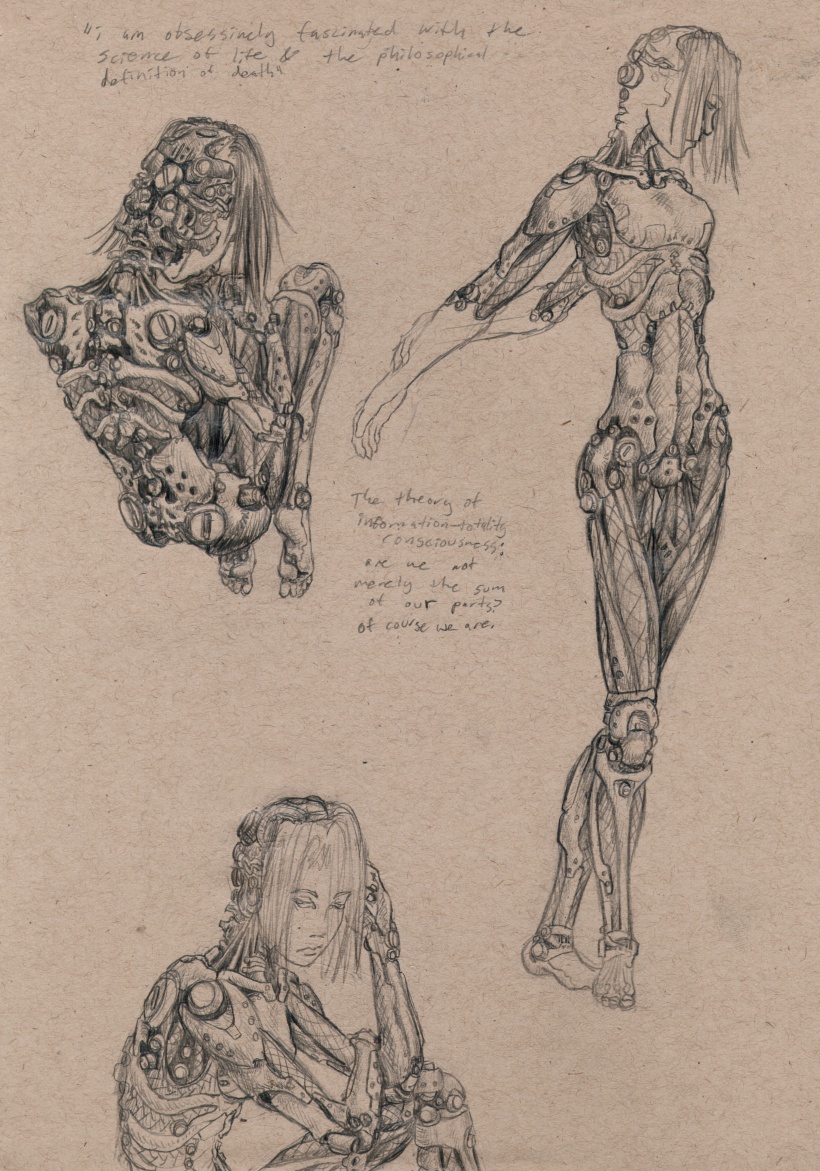 "i am obsessively fascinated with the
science of life & the philosophical
definition of death"
The theory of
information-totality
consciousness:
are we not
merely the sum
of our parts?
of course we are.